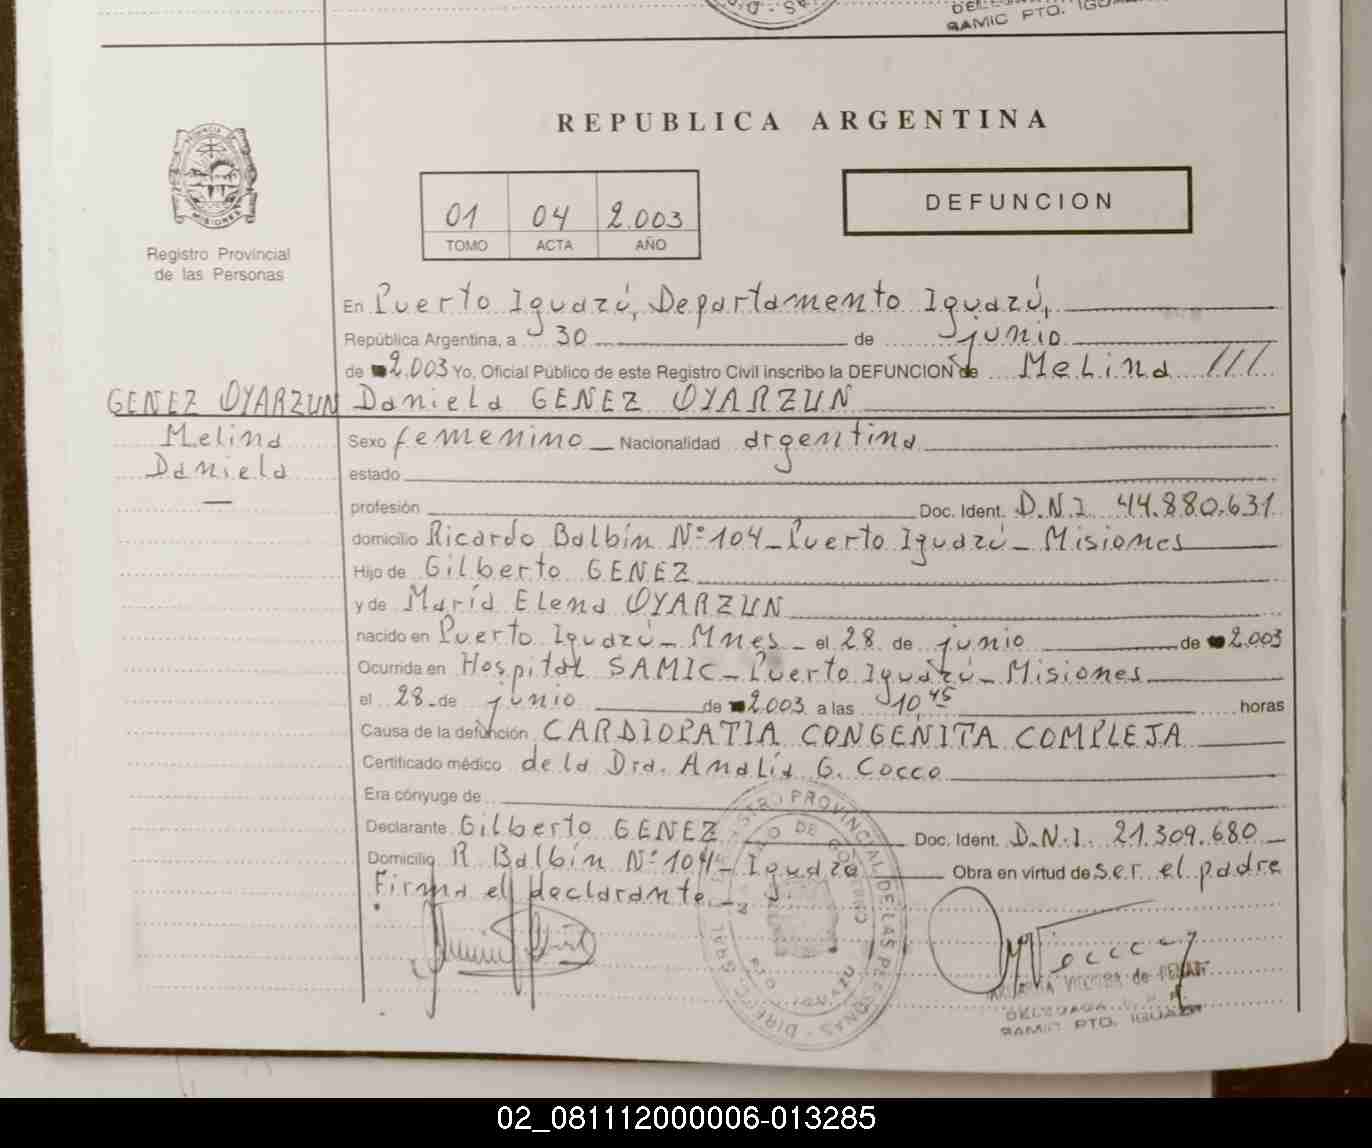 SAMIC PTO. IGUA
REPUBLICA ARGENTINA
Registro Provincial
de las Personas
01 04 2.003
TOMO ACTA AÑO
DEFUNCION
En Puerto Iguazú, Departamento Iguazú,
República Argentina, a 30 de junio
de 2.003 Yo, Oficial Público de este Registro Civil inscribo la DEFUNCION de Melina ///
GENEZ OYARZUN Daniela GENEZ OYARZUN
Melina
Daniela
Sexo femenino Nacionalidad argentina
estado
profesión Doc. Ident. D.N.I. 44.880.631
domicilio Ricardo Balbín Nº 104 - Puerto Iguazú - Misiones
Hijo de Gilberto GENEZ
y de María Elena OYARZUN
nacido en Puerto Iguazú - Mnes - el 28 de junio de 2.003
Ocurrida en Hospital SAMIC - Puerto Iguazú - Misiones
el 28 de junio de 2.003 a las 10,45 horas
Causa de la defunción CARDIOPATIA CONGENITA COMPLEJA
Certificado médico de la Dra. Analía G. Cocco
Era cónyuge de
Declarante Gilberto GENEZ Doc. Ident. D.N.I. 21.309.680
Domicilio R. Balbín Nº 104 - Iguazú Obra en virtud de ser el padre
Firma el declarante. -
REGISTRO PROVINCIAL DE LAS PERSONAS
DELEGADA
SAMIC PTO. IGUAZU
02_081112000006-013285